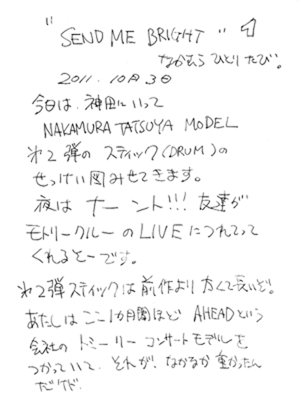 "SEND ME BRIGHT"
なかむら ひとりたび。
2011. 10月 3日
今日は、神田にいって
NAKAMURA TATSUYA MODEL
第2弾の スティック(DRUM)の
せっけい図みせてきます。
夜は ナーント!!! 友達が
モトリークルーのLIVEにつれてって
くれるとーです。
第2弾スティックは前作より太くて長いぞ。
あたしは ここ1か月間ほど AHEADという
会社の トミーリー コンサートモデルを
つかっていて、それが、なかなか 重かったん
だけど、